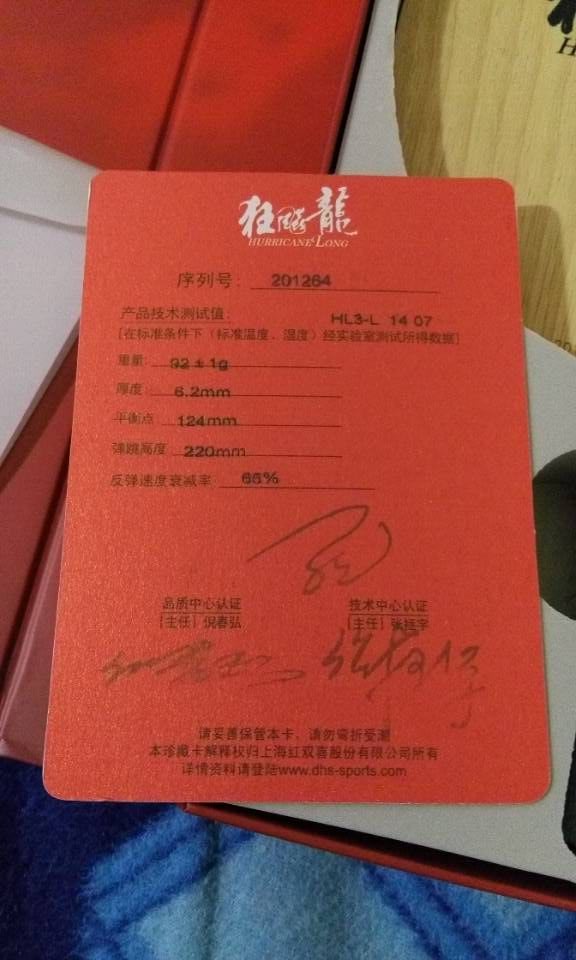 狂飚龍
HURRICANE·LONG
序列号: 201264
产品技术测试值: HL3-L 14 07
[在标准条件下（标准温度、湿度）经实验室测试所得数据]
重量: 92±1g
厚度: 6.2mm
平衡点: 124mm
弹跳高度 220mm
反弹速度衰减率 66%
品质中心认证 技术中心认证
[主任] 倪春弘 [主任] 张挺宇
请妥善保管本卡、请勿弯折受潮
本珍藏卡解释权归上海红双喜股份有限公司所有
详情资料请登陆www.dhs-sports.com